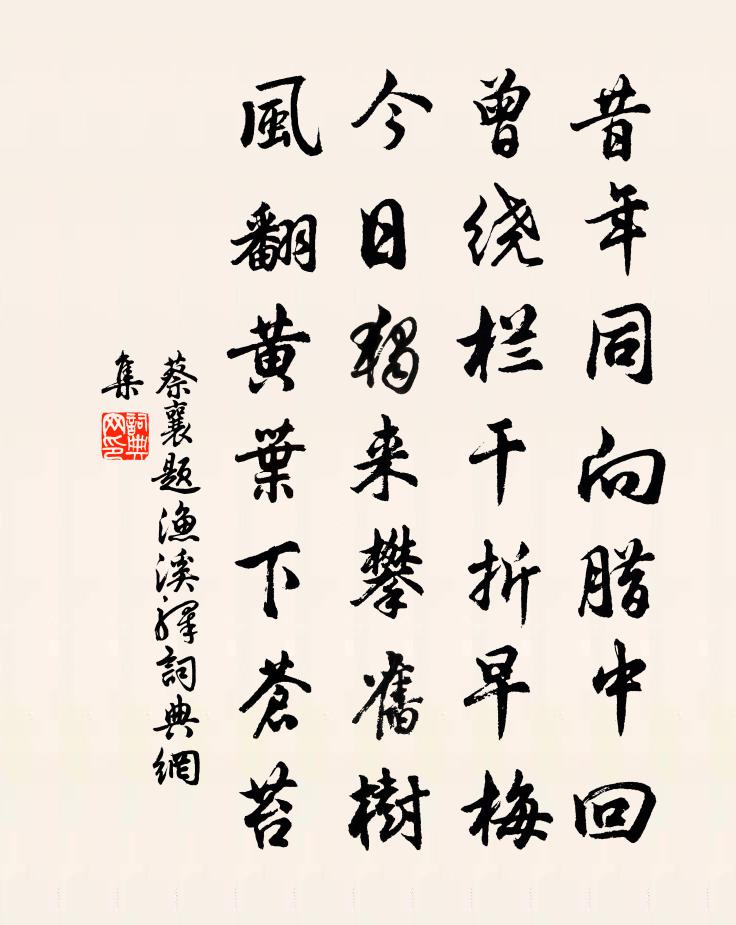 昔年同向腊中回
曾绕栏干折早梅
今日獨来攀舊樹
風翻黄葉下蒼苔
蔡襄题漁溪驛詞典網
集
詞典
网印